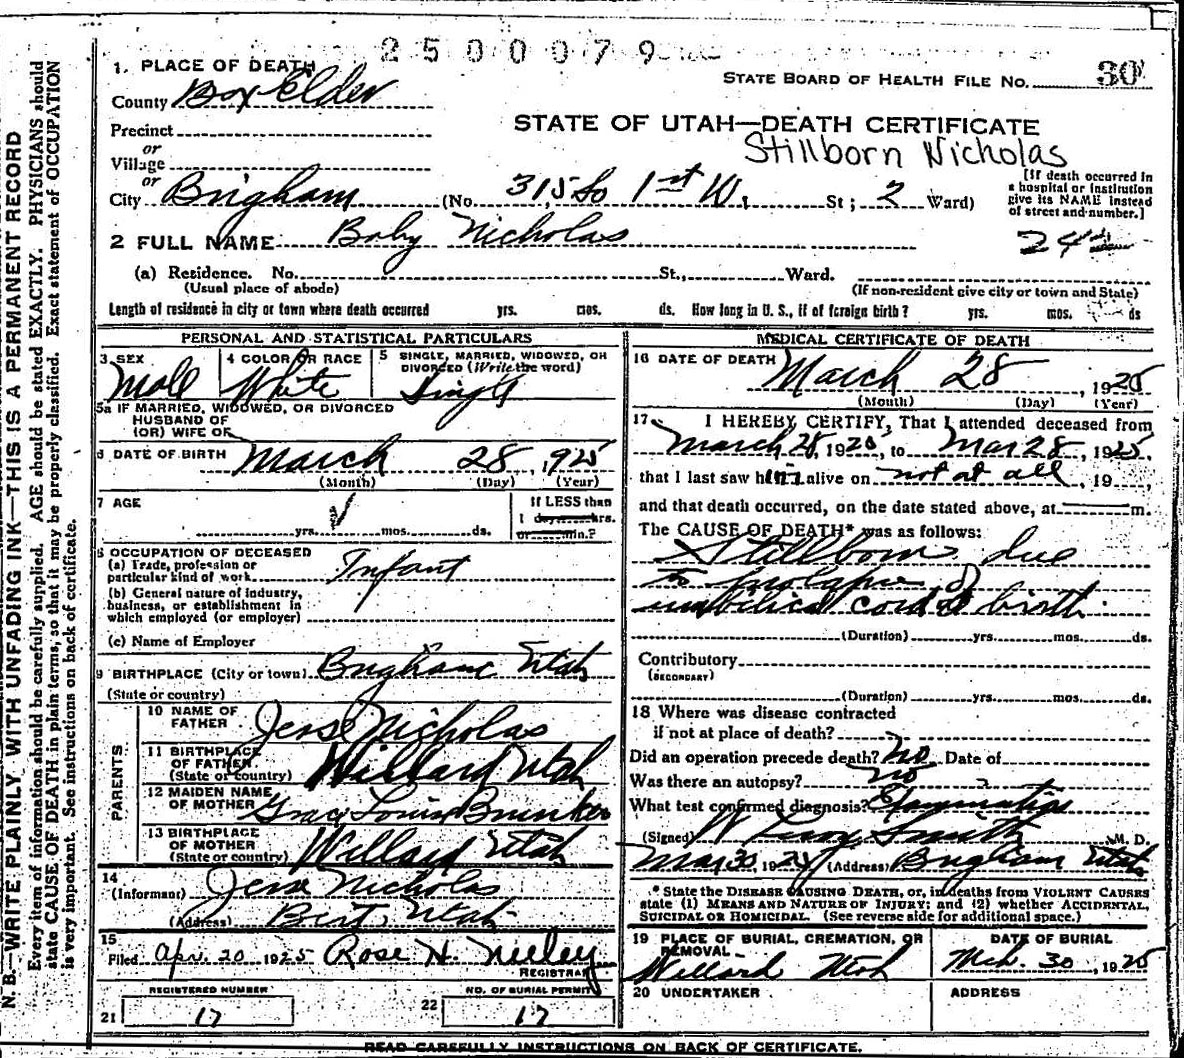 2500079
1. PLACE OF DEATH
STATE BOARD OF HEALTH FILE NO. 30
County Box Elder
STATE OF UTAH—DEATH CERTIFICATE
Precinct
Stillborn Nicholas
or
Village
or
[If death occurred in a hospital or institution give its NAME instead of street and number.]
City Brigham (No. 315 So 1st W. St; 2 Ward)
2 FULL NAME Baby Nicholas
242
(a) Residence. No. St., Ward.
(Usual place of abode) (If non-resident give city or town and State)
Length of residence in city or town where death occurred yrs. mos. ds. How long in U. S., if of foreign birth? yrs. mos. ds
PERSONAL AND STATISTICAL PARTICULARS
3 SEX Male
4 COLOR OR RACE White
5 SINGLE, MARRIED, WIDOWED, OR DIVORCED (Write the word) Single
5a IF MARRIED, WIDOWED, OR DIVORCED
HUSBAND OF
(OR) WIFE OF
6 DATE OF BIRTH March 28, 1925
(Month) (Day) (Year)
7 AGE yrs. mos. ds.
If LESS than
1 day hrs.
or min.?
8 OCCUPATION OF DECEASED
(a) Trade, profession or
particular kind of work Infant
(b) General nature of industry,
business, or establishment in
which employed (or employer)
(c) Name of Employer
9 BIRTHPLACE (City or town) Brigham Utah
(State or country)
PARENTS
10 NAME OF
FATHER Jesse Nicholas
11 BIRTHPLACE
OF FATHER
(State or country) Willard Utah
12 MAIDEN NAME
OF MOTHER Grace Louise
13 BIRTHPLACE
OF MOTHER
(State or country) Willard Utah
14
(Informant) Jesse Nicholas
(Address) Utah
15
Filed Apr. 20 1925 Rose H. Neeley
REGISTRAR
REGISTERED NUMBER
21 17
NO. OF BURIAL PERMIT
22 17
MEDICAL CERTIFICATE OF DEATH
16 DATE OF DEATH March 28, 1925
(Month) (Day) (Year)
17 I HEREBY CERTIFY, That I attended deceased from
March 28, 1925, to Mar 28, 1925,
that I last saw him alive on not at all, 19
and that death occurred, on the date stated above, at m.
The CAUSE OF DEATH* was as follows:
Stillborn due
to prolapse of
umbilical cord at birth.
(Duration) yrs. mos. ds.
Contributory
(SECONDARY)
(Duration) yrs. mos. ds.
18 Where was disease contracted
if not at place of death?
Did an operation precede death? No Date of
Was there an autopsy? no
What test confirmed diagnosis? Examination
(Signed) W Leroy Smith M. D.
Mar 30, 1925 (Address) Brigham Utah
* State the DISEASE CAUSING DEATH, or, in deaths from VIOLENT CAUSES
state (1) MEANS AND NATURE OF INJURY; and (2) whether ACCIDENTAL,
SUICIDAL OR HOMICIDAL. (See reverse side for additional space.)
19 PLACE OF BURIAL, CREMATION, OR
REMOVAL
Willard Utah
DATE OF BURIAL
Mch. 30, 1925
20 UNDERTAKER
ADDRESS
READ CAREFULLY INSTRUCTIONS ON BACK OF CERTIFICATE.
N. B.—WRITE PLAINLY WITH UNFADING INK—THIS IS A PERMANENT RECORD
Every item of information should be carefully supplied. AGE should be stated EXACTLY. PHYSICIANS should
state CAUSE OF DEATH in plain terms, so that it may be properly classified. Exact statement of OCCUPATION
is very important. See instructions on back of certificate.